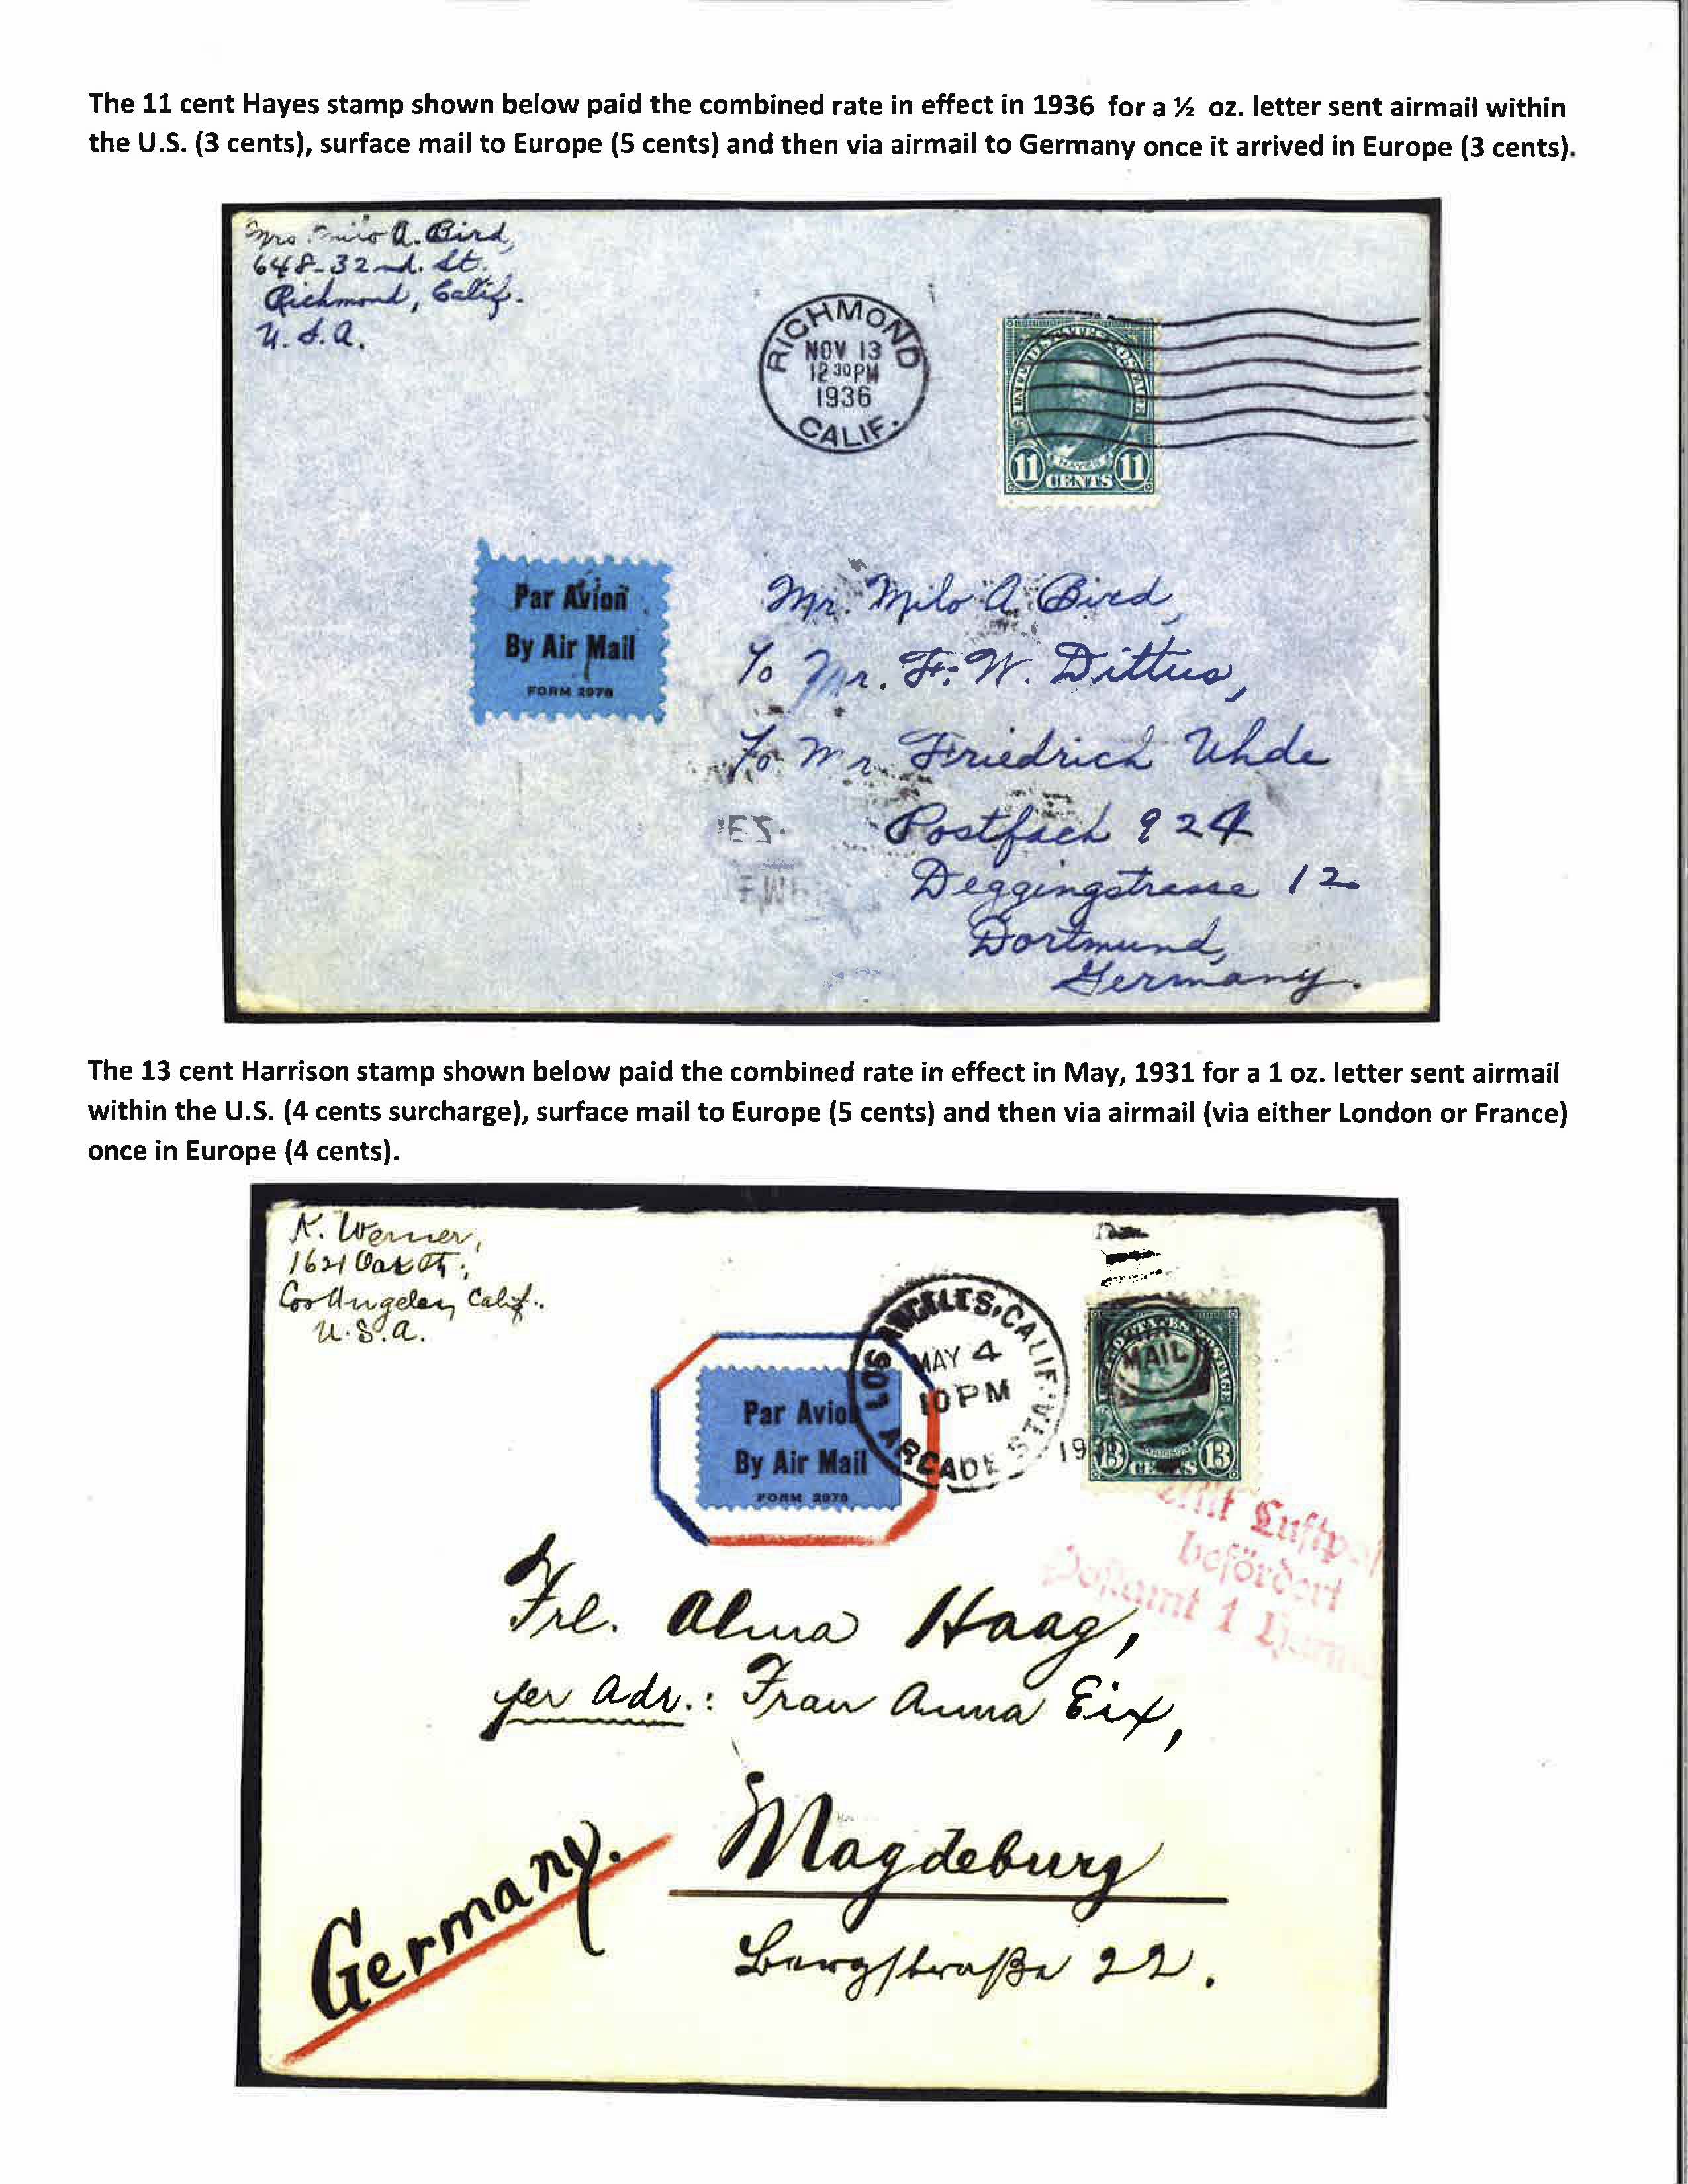 The 11 cent Hayes stamp shown below paid the combined rate in effect in 1936 for a ½ oz. letter sent airmail within
the U.S. (3 cents), surface mail to Europe (5 cents) and then via airmail to Germany once it arrived in Europe (3 cents).
Mrs. A. Bird,
648-32nd. St.
Richmond, Calif.
U.S.A.
RICHMOND
NOV 13
12 30PM
1936
CALIF.
UNITED STATES POSTAGE
HAYES
11 CENTS 11
Par Avion
By Air Mail
FORM 2978
Mr. Milo A. Bird,
% Mr. F. W. Dittus,
% Mr. Friedrich Uhde
Postfach 924
Deggingstrasse 12
Dortmund,
Germany.
The 13 cent Harrison stamp shown below paid the combined rate in effect in May, 1931 for a 1 oz. letter sent airmail
within the U.S. (4 cents surcharge), surface mail to Europe (5 cents) and then via airmail (via either London or France)
once in Europe (4 cents).
K. Werner,
1621 Oak St.,
Los Angeles, Calif.
U.S.A.
LOS ANGELES, CALIF.
MAY 4
10 PM
ARCADE STA.
MAIL
13 CENTS 13
Par Avion
By Air Mail
FORM 2978
Mit Luftpost
befördert
Postamt 1
Frl. Alma Haag,
per Adr.: Frau Anna Eix,
Magdeburg
Bergstraße 22.
Germany.